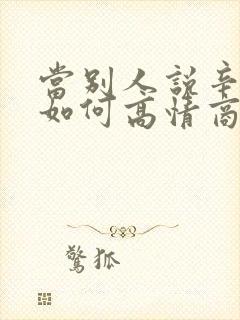 當別人說辛
如何高情商
驚狐